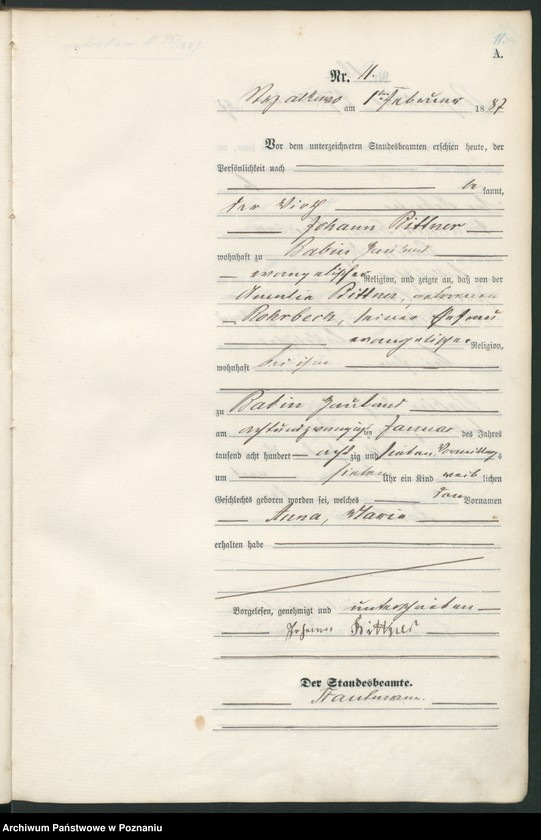 11.
A.
Nr. 11.
am 1ten Februar 1887
Vor dem unterzeichneten Standesbeamten erschien heute, der
Persönlichkeit nach
be kannt,
der Wirth
Johann Bittner
wohnhaft zu Babin Hauland
evangelischer Religion, und zeigte an, daß von der
Amalie Bittner, geborenen
Rohrbeck, seiner Ehefrau
evangelischer Religion,
wohnhaft bei ihm
zu Babin Hauland
am achtundzwanzigsten Januar des Jahres
tausend acht hundert acht zig und sieben Vormittags
um sieben Uhr ein Kind weib lichen
Geschlechts geboren worden sei, welches den Vornamen
Anna, Maria
erhalten habe
Vorgelesen, genehmigt und unterschrieben
Johann Bittner
Der Standesbeamte.
Archiwum Państwowe w Poznaniu